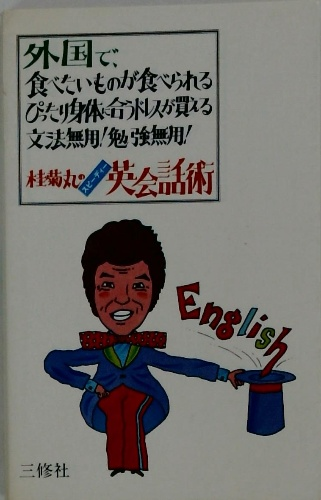 外国で、
食べたいものが食べられる
ぴったり身体に合うドレスが買える
文法無用！勉強無用！
桂菊丸のスピーディー英会話術
English
三修社